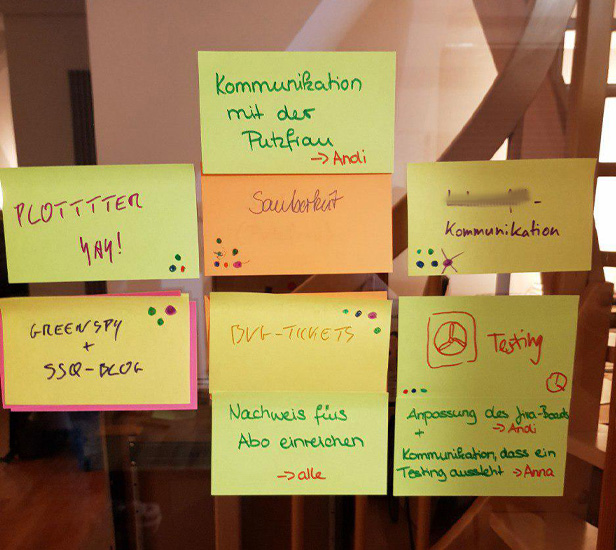 Kommunikation
mit der
Putzfrau
→ Andi
PLOTTTTER
YAY!
Sauberkeit
Kommunikation
GREENSPY
+
SSQ-BLOG
BVG-TICKETS
Nachweis fürs
Abo einreichen
→ alle
Testing
Anpassung des Jira-Boards
→ Andi
+
Kommunikation, dass ein
Testing aussteht → Anna